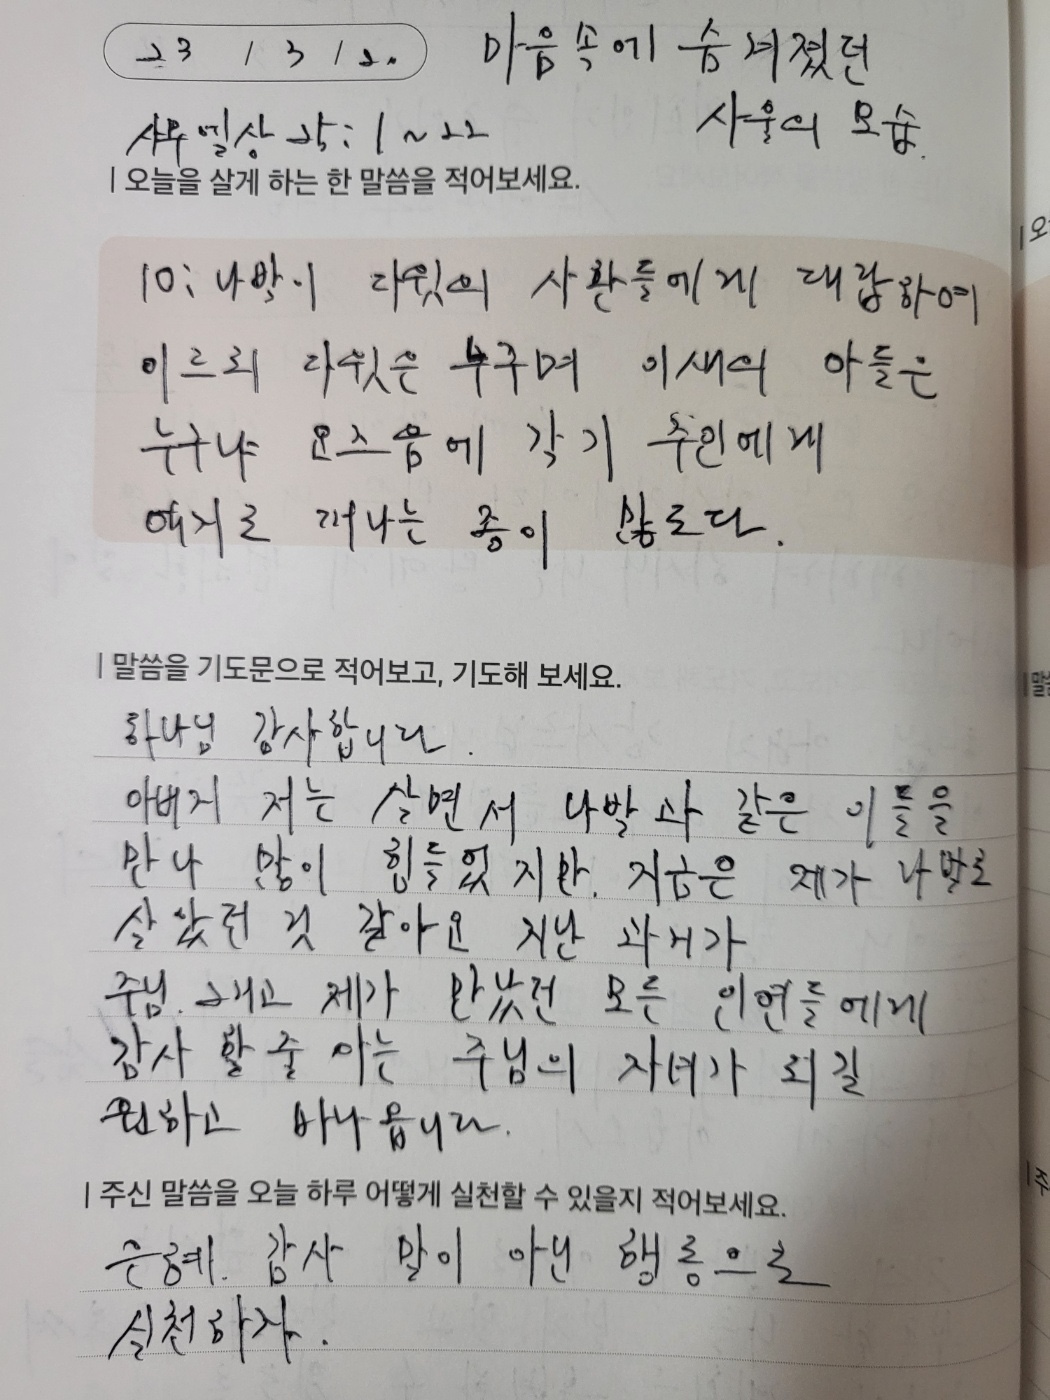 23 / 3 / 2.
마음속에 숨겨졌던
사울의 모습.
사무엘상 25:1~22
| 오늘을 살게 하는 한 말씀을 적어보세요.
10: 나발이 다윗의 사환들에게 대답하여
이르되 다윗은 누구며 이새의 아들은
누구냐 요즈음에 각기 주인에게
에게로 떠나는 종이 많도다.
| 말씀을 기도문으로 적어보고, 기도해 보세요.
하나님 감사합니다.
아버지 저는 살면서 나발과 같은 이들을
만나 많이 힘들었지만. 지금은 제가 나발로
살았던 것 같아요 지난 과거가
주님. 그리고 제가 만났던 모든 인연들에게
감사 할 줄 아는 주님의 자녀가 되길
원하고 바라옵니다.
| 주신 말씀을 오늘 하루 어떻게 실천할 수 있을지 적어보세요.
은혜. 감사 말이 아닌 행동으로
실천하자.